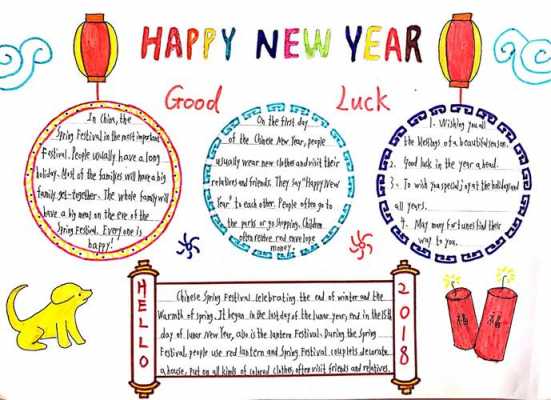 HAPPY NEW YEAR
Good Luck
In China, the
Spring Festival is the most important
Festival. People usually have a long
holiday. Most of the families will have a big
family get-together. The whole family will
have a big meal on the eve of the
Spring Festival. Every one is
happy!
On the first day
of the Chinese New Year, people
usually wear new clothes and visit their
relatives and friends. They say "Happy New
Year" to each other. People often go to
the parks or go shopping. Children
often receive red envelope
money.
1. Wishing you all
the blessings of a beautiful season.
2. Good luck in the year ahead.
3. To wish you special joy at the holidays and
all years.
4. May many fortunes find their
way to you.
HELLO
Chinese Spring Festival. Celebrating the end of winter and the
Warmth of spring. It began in the last day of the lunar year, end in the 15th
day of lunar New Year, also is the lantern Festival. During the Spring
Festival, people use red lantern and Spring Festival couplets decorate
a house, put on all kinds of colored clothes, often visit friends and relatives.
2018
福
福